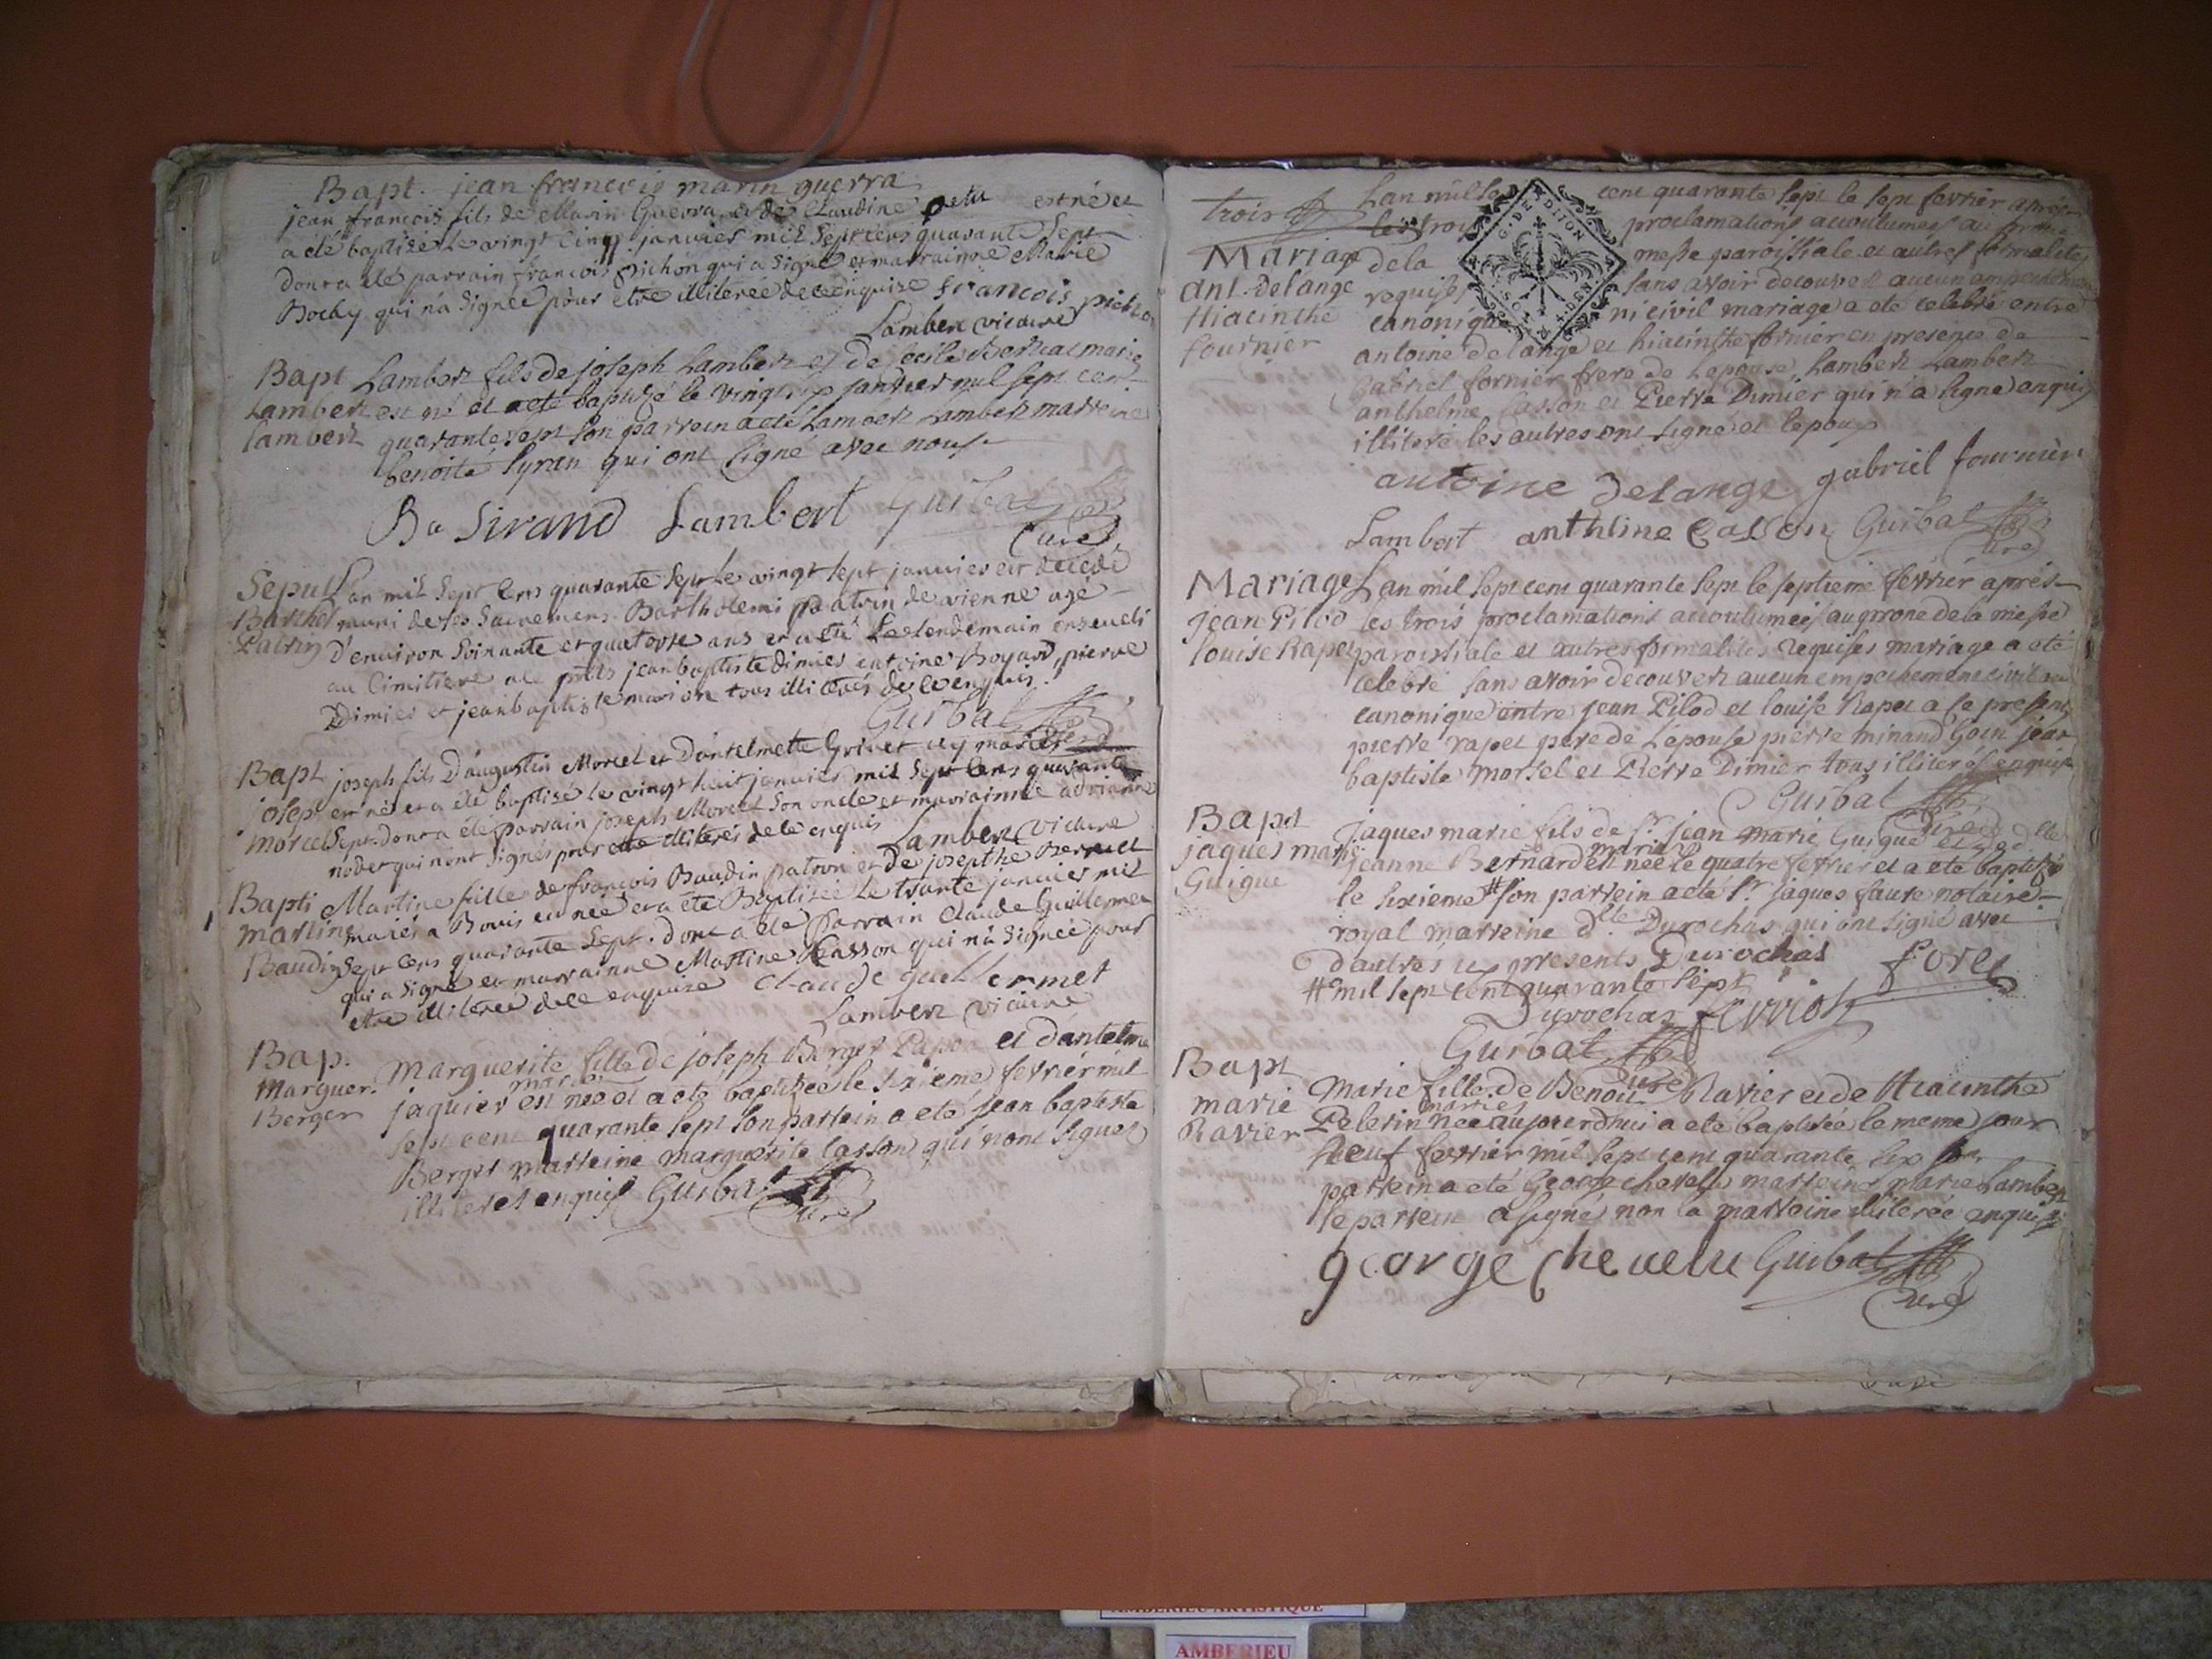 Bapt. jean francois marin guerra
jean francois fils de Marin Guerra et de Claudine petit est né et
a été baptisé le vingt cinq janvier mil sept cens quarante sept
dont a été parrain francois pichon qui a signé et marrainne Marie
Bochy qui n'a signée pour etre illiterée de ce enquize francois pichon
Lambert vicaire
Bapt Lambert fils de joseph Lambert et de mariés
Lambert est né et a eté baptizé le vingt janvier mil sept cen
Lambert quarante sept son parrein a eté Lambert Lambert marreine
benoite Syran qui ont signé avec nous
Ba Sirand Lambert Guibal
Curé
Sepult L'an mil sept cens quarante sept le vingt sept janvier est decedé
Barthel muni de ses sacremens Bartholemi patrin de vienne agé
Patrin d'environ soixante et quatorse ans et a eté le lendemain enseveli
au cimitiere a ce pnts jean baptiste dimier antoine Boyard, pierre
Dimier et jean baptiste marion tous illiterés de ce enquis.
Guibal
Curé
Bapt joseph fils D'augustin Morcel et D'antelmette Grinet mariés
josep est né et a été baptisé le vingt huit janvier mil sept cens quarante
morcel sept. dont a été parrain joseph Morcel son oncle et marrainne adrianne
nodet qui n'ont signés pour etre illiterés de ce enquis Lambert vicaire
Bapti Martine fille de francois Baudin patron et de josepthe
martine mariés a est née et a été Baptisée le trante janvier mil
Baudin sept cens quarante sept. dont a été parrain Claude Guillermet
qui a signé et marrainne Martine Casson qui n'a signée pour
etre illiterée de ce enquise claude guillermet
Lambert vicaire
Bap. marguerite fille de joseph Berger et d'antelme
marguer. jaquier mariés est née et a eté baptizée le sixieme fevrier mil
Berger sept cent quarante sept son parrein a eté jean baptiste
Berger marreine marguerite Casson qui n'ont signés
illiteres enquis Guibal
Curé
L'an mil se cent quarante sept le sept fevrier aprés
trois les troi proclamations accoutumees au prone
Mariage de la messe paroissiale et autres formalites
Ant. delange requises sans avoir decouvert aucun empechement
Hiacinthe canonique ni civil mariage a eté celebré entre
fournier antoine delange et hiacinthe fornier en presence de
G. DE DITION
gabriel fornier frere de l'epouse Lambert Lambert
anthelme Casson et Pierre Dimier qui n'a signé enquis
illiteré les autres ont signé et l'epoux
antoine delange gabriel fournier
Lambert anthelme Casson Guibal
Curé
Mariage L'an mil sept cent quarante sept le septieme fevrier aprés
jean Pilod les trois proclamations accoutumees au prone de la messe
louise Rapet paroissiale et autres formalités requises mariage a eté
celebré sans avoir decouvert aucun empechement civil ni
canonique entre jean Pilod et louise Rapet a ce presents
pierre rapet pere de l'epouse pierre minand Goin jean
baptiste morsel et Pierre Dimier tous illiterés enquis
Guibal
Curé
Bapt Jaques marie fils de Sr. jean marie Guigue et de dlle
jaques marie jeanne Bernard mariés est née le quatre fevrier et a eté baptizé
Guigue le sixieme # son parrein a eté Sr. jaques faure notaire
royal marreine dlle. Durochas qui ont signé avec
d'autres presents Durochas fore
# mil sept cent quarante sept
Durochas ferriot
Guibal
Curé
Bapt Marie fille de Benoit Ravier et de Hiacinthe
marie Pelerin mariés née aujourd'hui a eté baptizée le meme jour
Ravier neuf fevrier mil sept cent quarante sept son
parrein a eté George chevelu marreine marie Lambert
le parrein a signé non la marreine illiterée enquise
george Chevelu Guibal
Curé
AMBERIEU ARTISTIQUE
AMBERIEU